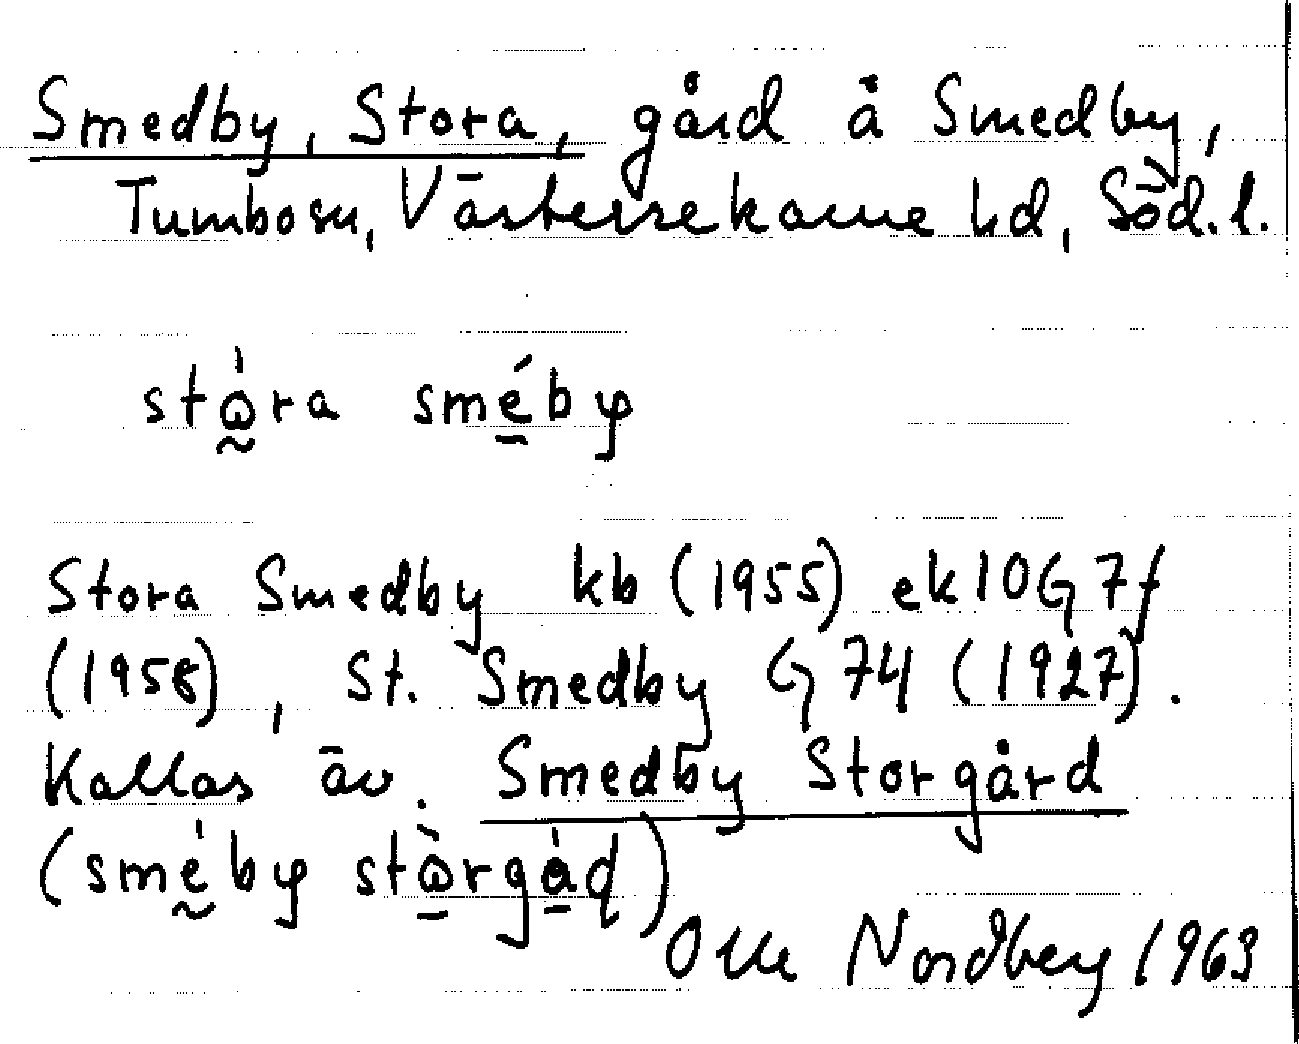 Smedby, Stora, gård å Smedby,
Tumbosn, Västerrekarne hd, Söd.l.
stⱺra sméby
Stora Smedby kb (1955) ek 10G 7f
(1958), St. Smedby G 74 (1927).
Kallas äv. Smedby Storgård
(sméby stⱺrgåɖ)
Olle Nordberg 1963